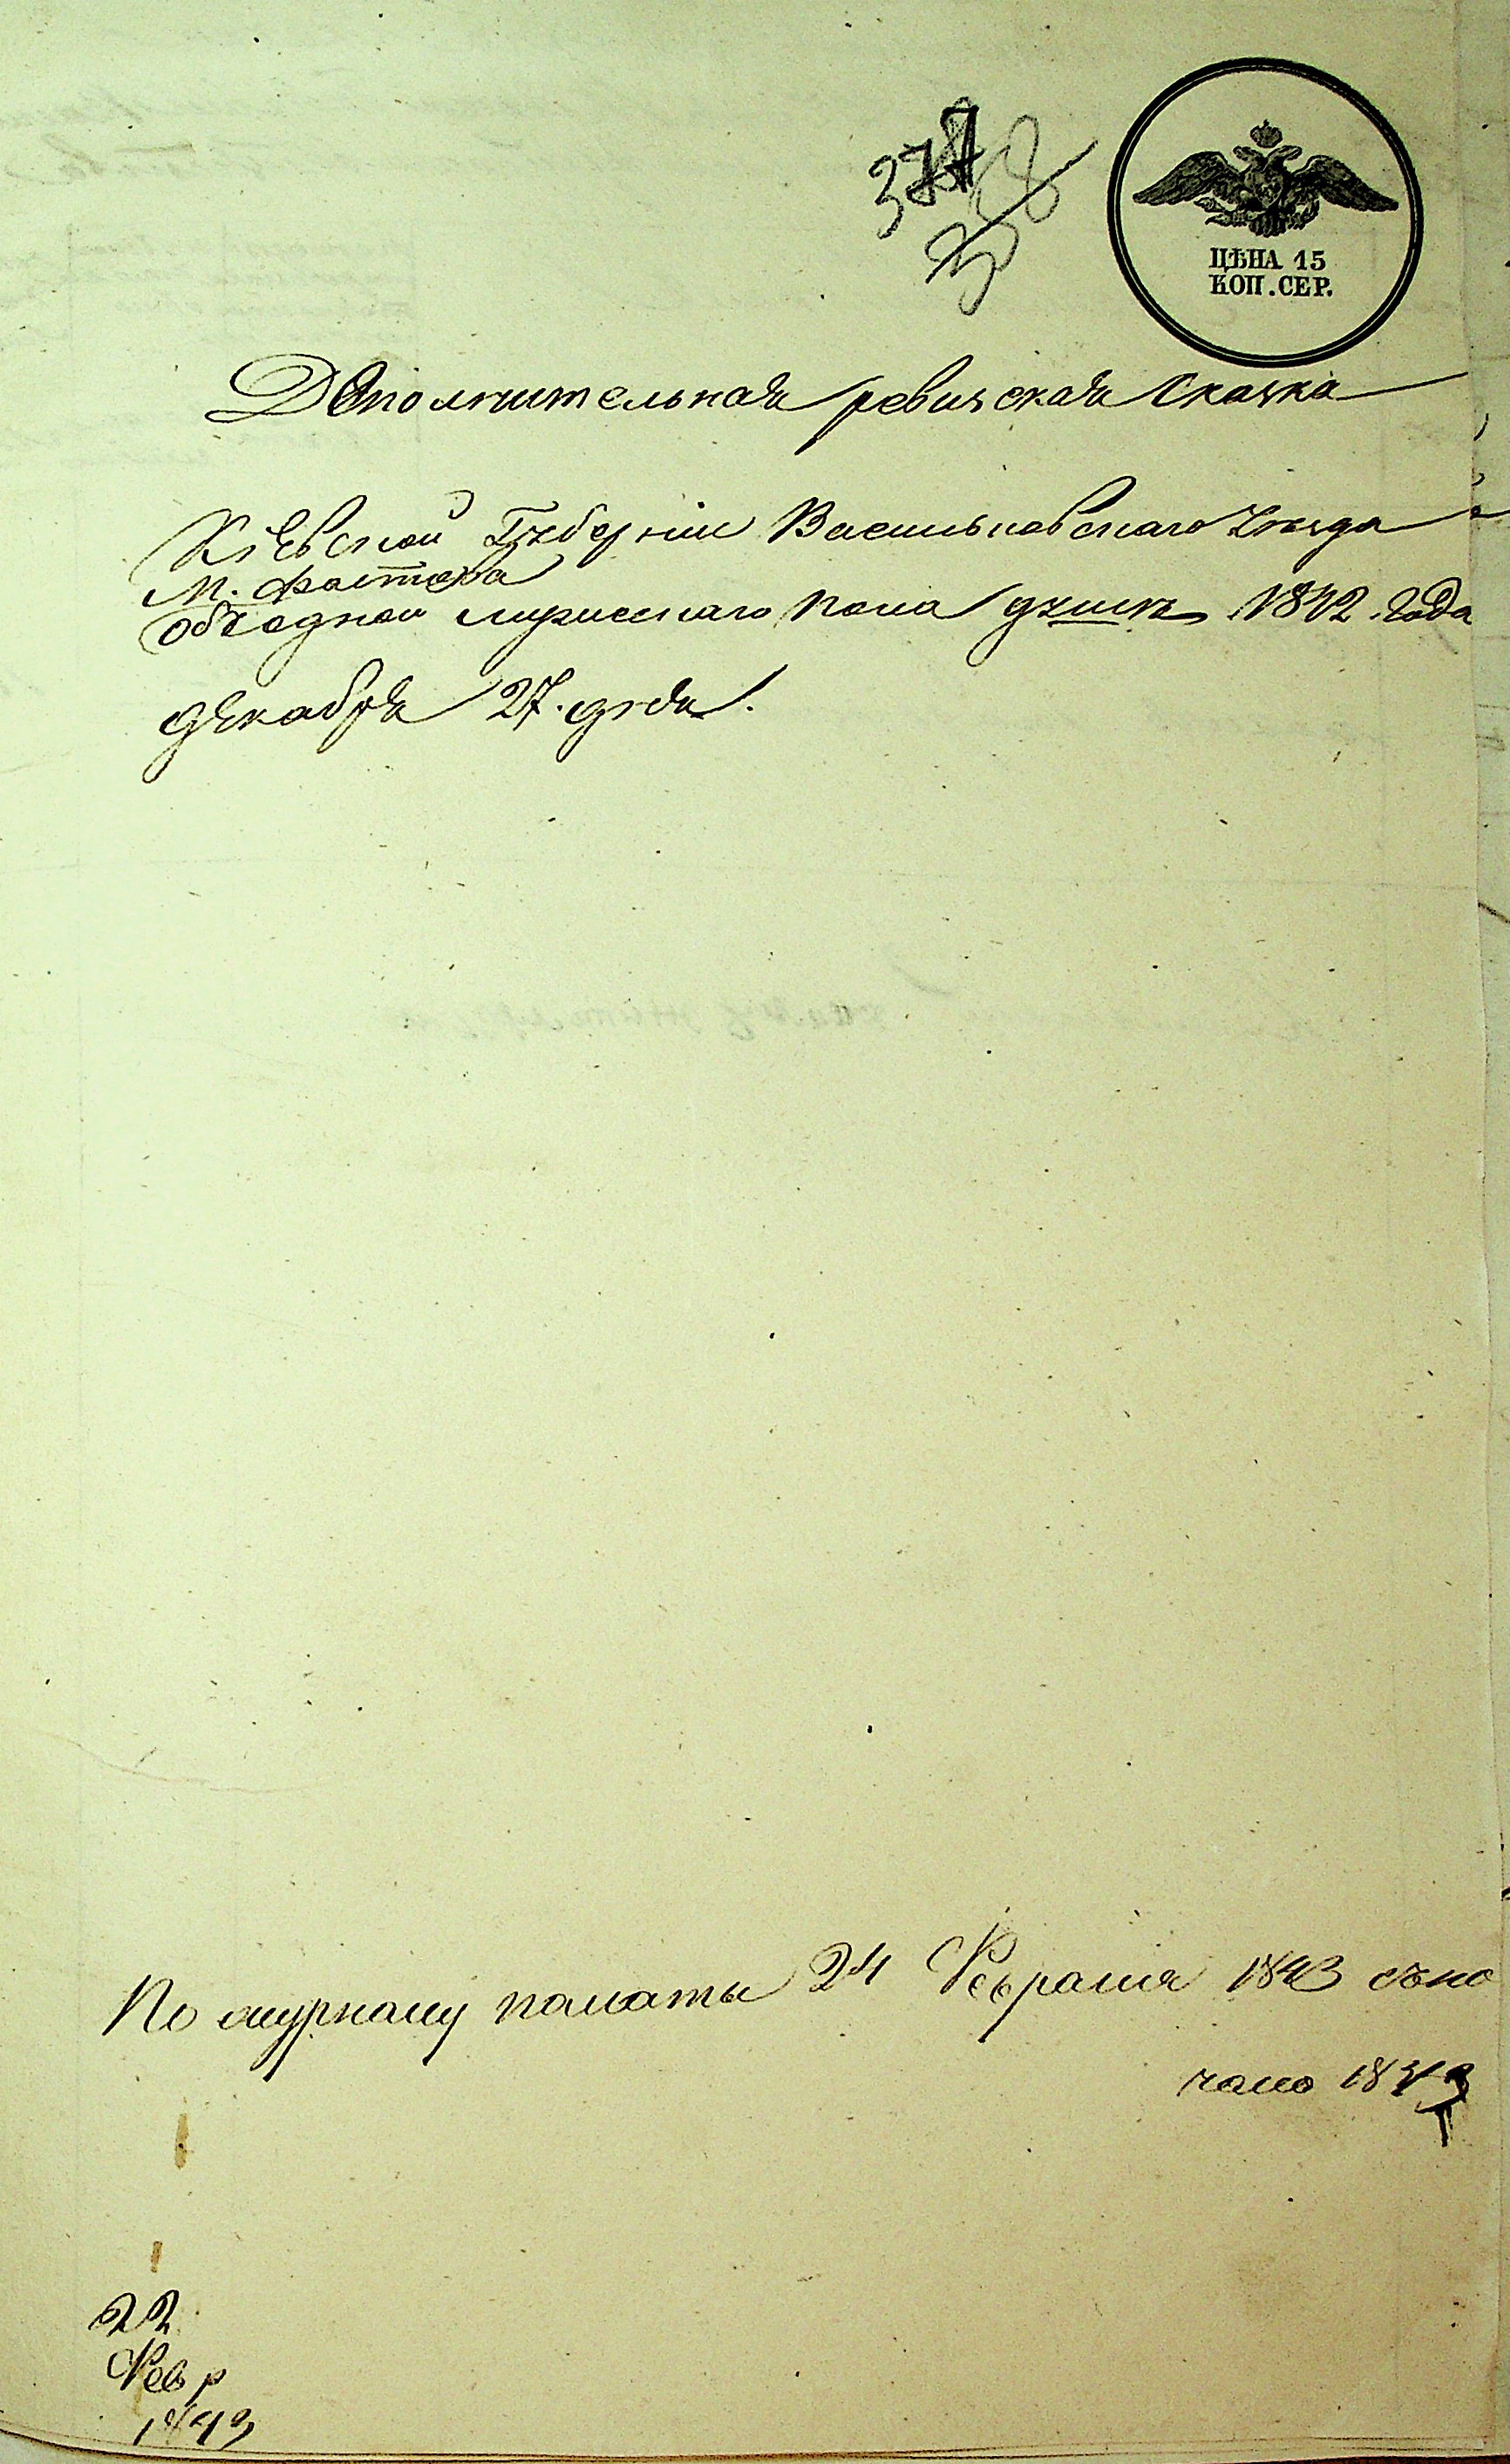 377
38
ЦѢНА 15
КОП. СЕР.
Дополнительная ревизская сказка
Кіевской Губерніи Васильковскаго уезда
М. Фастова
объ одной мужескаго пола душѣ 1842 года
декабря 27. дня.
По журналу палаты 24 Февраля 1843 сѣно
чено 1843
22
Февр
1843